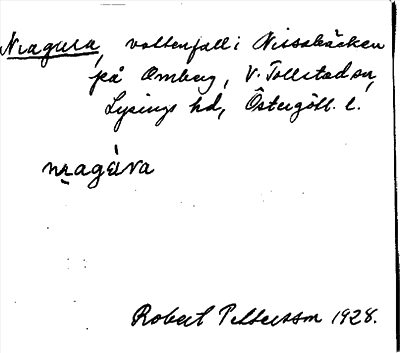 Nragura, vattenfall i Nissabäcken
på Omberg, V. Tollstad sn,
Lysings hd, Östergötl. l.
Robert Pettersson 1928.